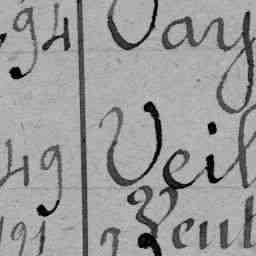 94 Vay
49 Veil
191 Vent